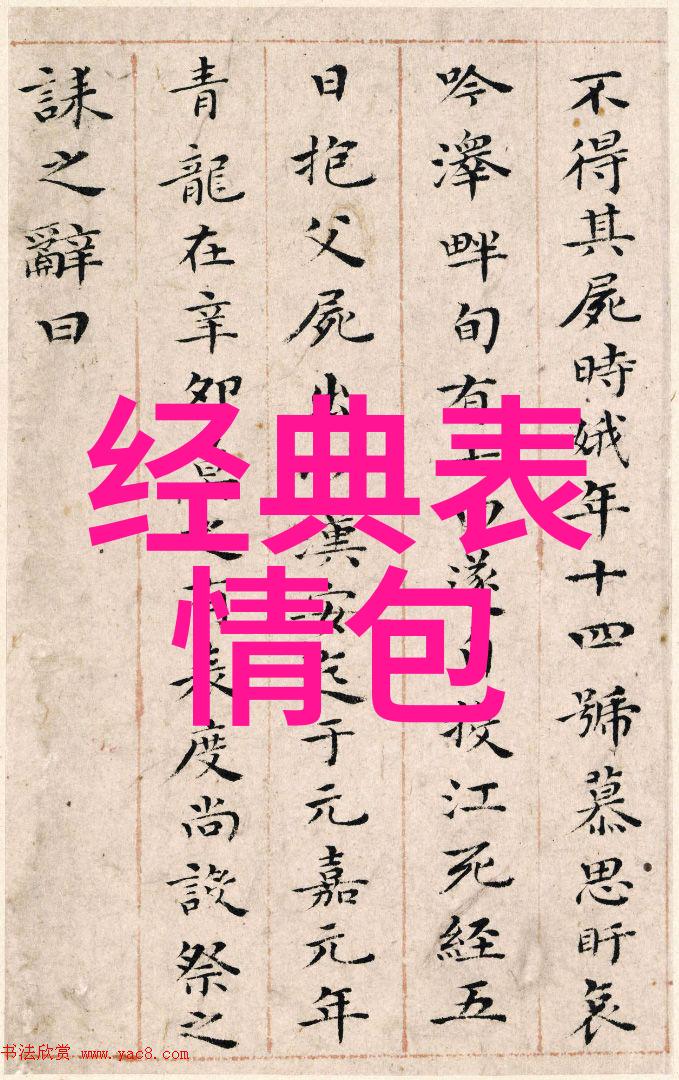 不得其屍時娥年十四號慕思盱哀
吟澤畔旬有遂自投江死經五
日抱父屍出漢安迄于元嘉元年
青龍在辛卯之有表度尚設祭之
誄之辭曰
经典表
情包
书法欣赏 www.yac8.com